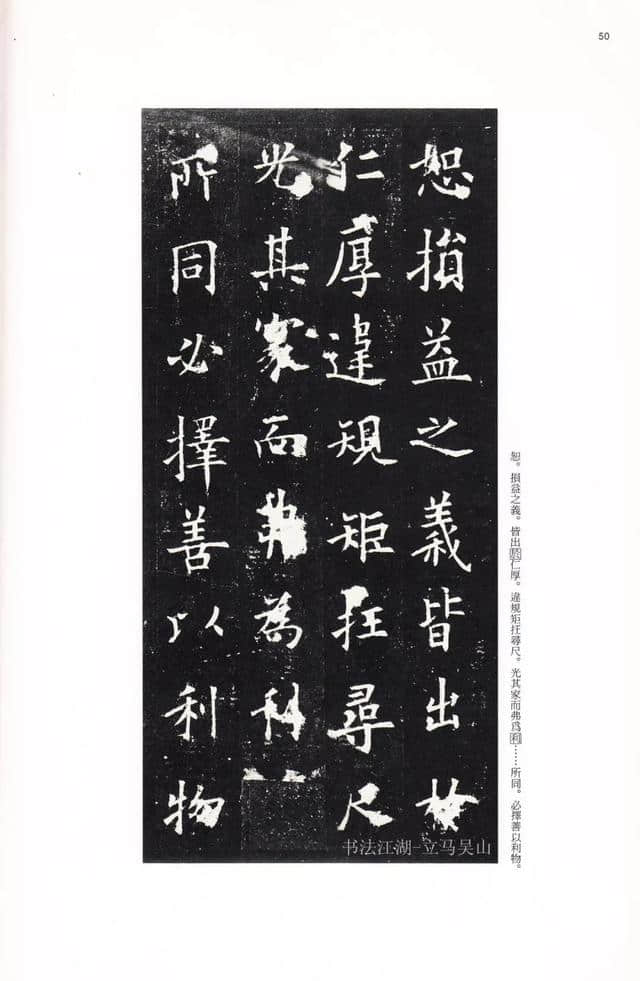 50
恕損益之義皆出於
仁厚違規矩抂尋尺
光其家而弗為利
所同必擇善以利物
恕。損益之義。皆出於仁厚。違規矩抂尋尺。光其家而弗爲利……所同。必擇善以利物。
书法江湖-立马吴山